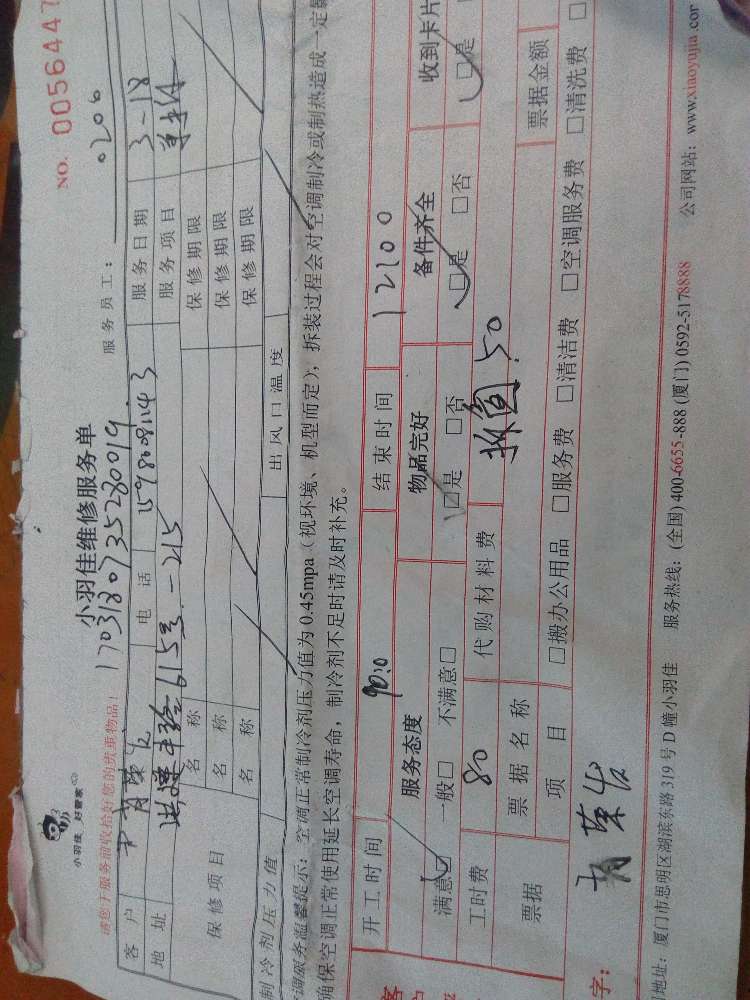 小羽佳 好管家
小羽佳维修服务单
NO. 0056447
请您于服务前收拾好您的贵重物品!
1703180735280019
服务员工: 0206
客户 电话 15980081143 服务日期 3-18
地址 615号-215 服务项目
保修项目
名称 保修期限
名称 保修期限
名称 保修期限
制冷剂压力值 出风口温度
调服务温馨提示:空调正常制冷剂压力值为0.45mpa(视环境、机型而定);拆装过程会对空调制冷或制热造成一定
确保空调正常使用延长空调寿命,制冷剂不足时请及时补充。
开工时间 9010 结束时间 12100
服务态度 物品完好 备件齐全 收到卡片
满意□ 一般□ 不满意□ □是 □否 □是 □否 □是
工时费 80 代购材料费 50
票据 票据名称 票据金额
项目 □搬办公用品 □服务费 □清洁费 □空调服务费 □清洗费 □
字:
地址:厦门市思明区湖滨东路319号D幢小羽佳 服务热线:(全国)400-6655-888 (厦门)0592-5178888 公司网站:www.xiaoyujia.com